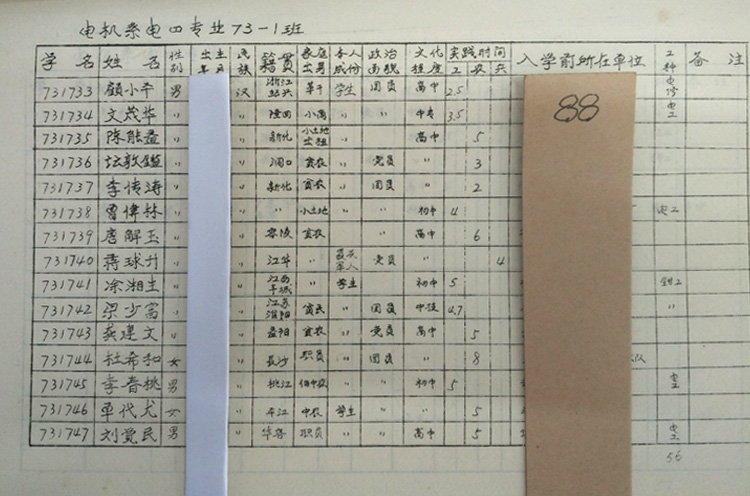 电机系电四专业73-1班
学名 姓名 性别 出生 民族 籍贯 家庭出身 本人成份 政治面貌 文化程度 实践时间 工 农 兵 入学前所在单位 工种 备注
731733 顾小平 男 汉 浙江绍兴 革干 学生 团员 高中 2.5 电修
731734 文茂华 〃 〃 隆回 小商 〃 中专 3.5 电工
731735 陈能益 〃 〃 新化 小土地出租 〃 高中 5
731736 〃 〃 洞口 贫农 〃 党员 〃 3
731737 李传涛 〃 〃 新化 贫农 〃 团员 〃 2
731738 曾伟林 〃 〃 〃 小土地 〃 初中 4 电工
731739 唐解玉 〃 〃 零陵 贫农 〃 高中 6
731740 蒋球升 〃 〃 江华 〃 复员军人 党员 〃 4
731741 涂湘生 〃 〃 江西丰城 〃 学生 初中 5 钳工
731742 梁少富 〃 〃 江苏 贫民 〃 团员 中技 4.7 〃
731743 龚建文 〃 〃 益阳 贫农 〃 党员 高中 5
731744 杜希和 女 〃 长沙 职员 〃 团员 〃 8 队
731745 李春桃 男 〃 桃江 〃 〃 初中 5 电工
731746 单代尤 女 〃 平江 中农 学生 〃 5
731747 刘觉民 男 〃 华容 职员 〃 高中 5 电工
88
56